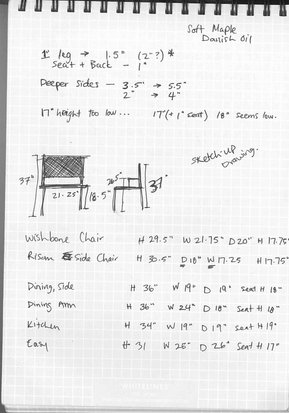 Soft Maple
Danish Oil
1" leg → 1.5" (2"?) *
Seat + Back - 1"
Deeper sides - 3.5" → 5.5"
2" → 4"
17" height too low... 17"(+1" seat) 18" seems low.
Sketchup
Drawing.
37"
21.25"
18.5"
37"
Wishbone Chair H 29.5" W 21.75" D 20" H 17.75"
Risom Side Chair H 30.5" D 18" W 17.25 H 17.75"
Dining, Side H 36" W 19" D 19" Seat H 18"
Dining Arm H 36" W 24" D 18" Seat H 18"
Kitchen H 34" W 19" D 19" Seat H 19"
Easy H 31 W 25" D 26" Seat H 17"
WHITELINES